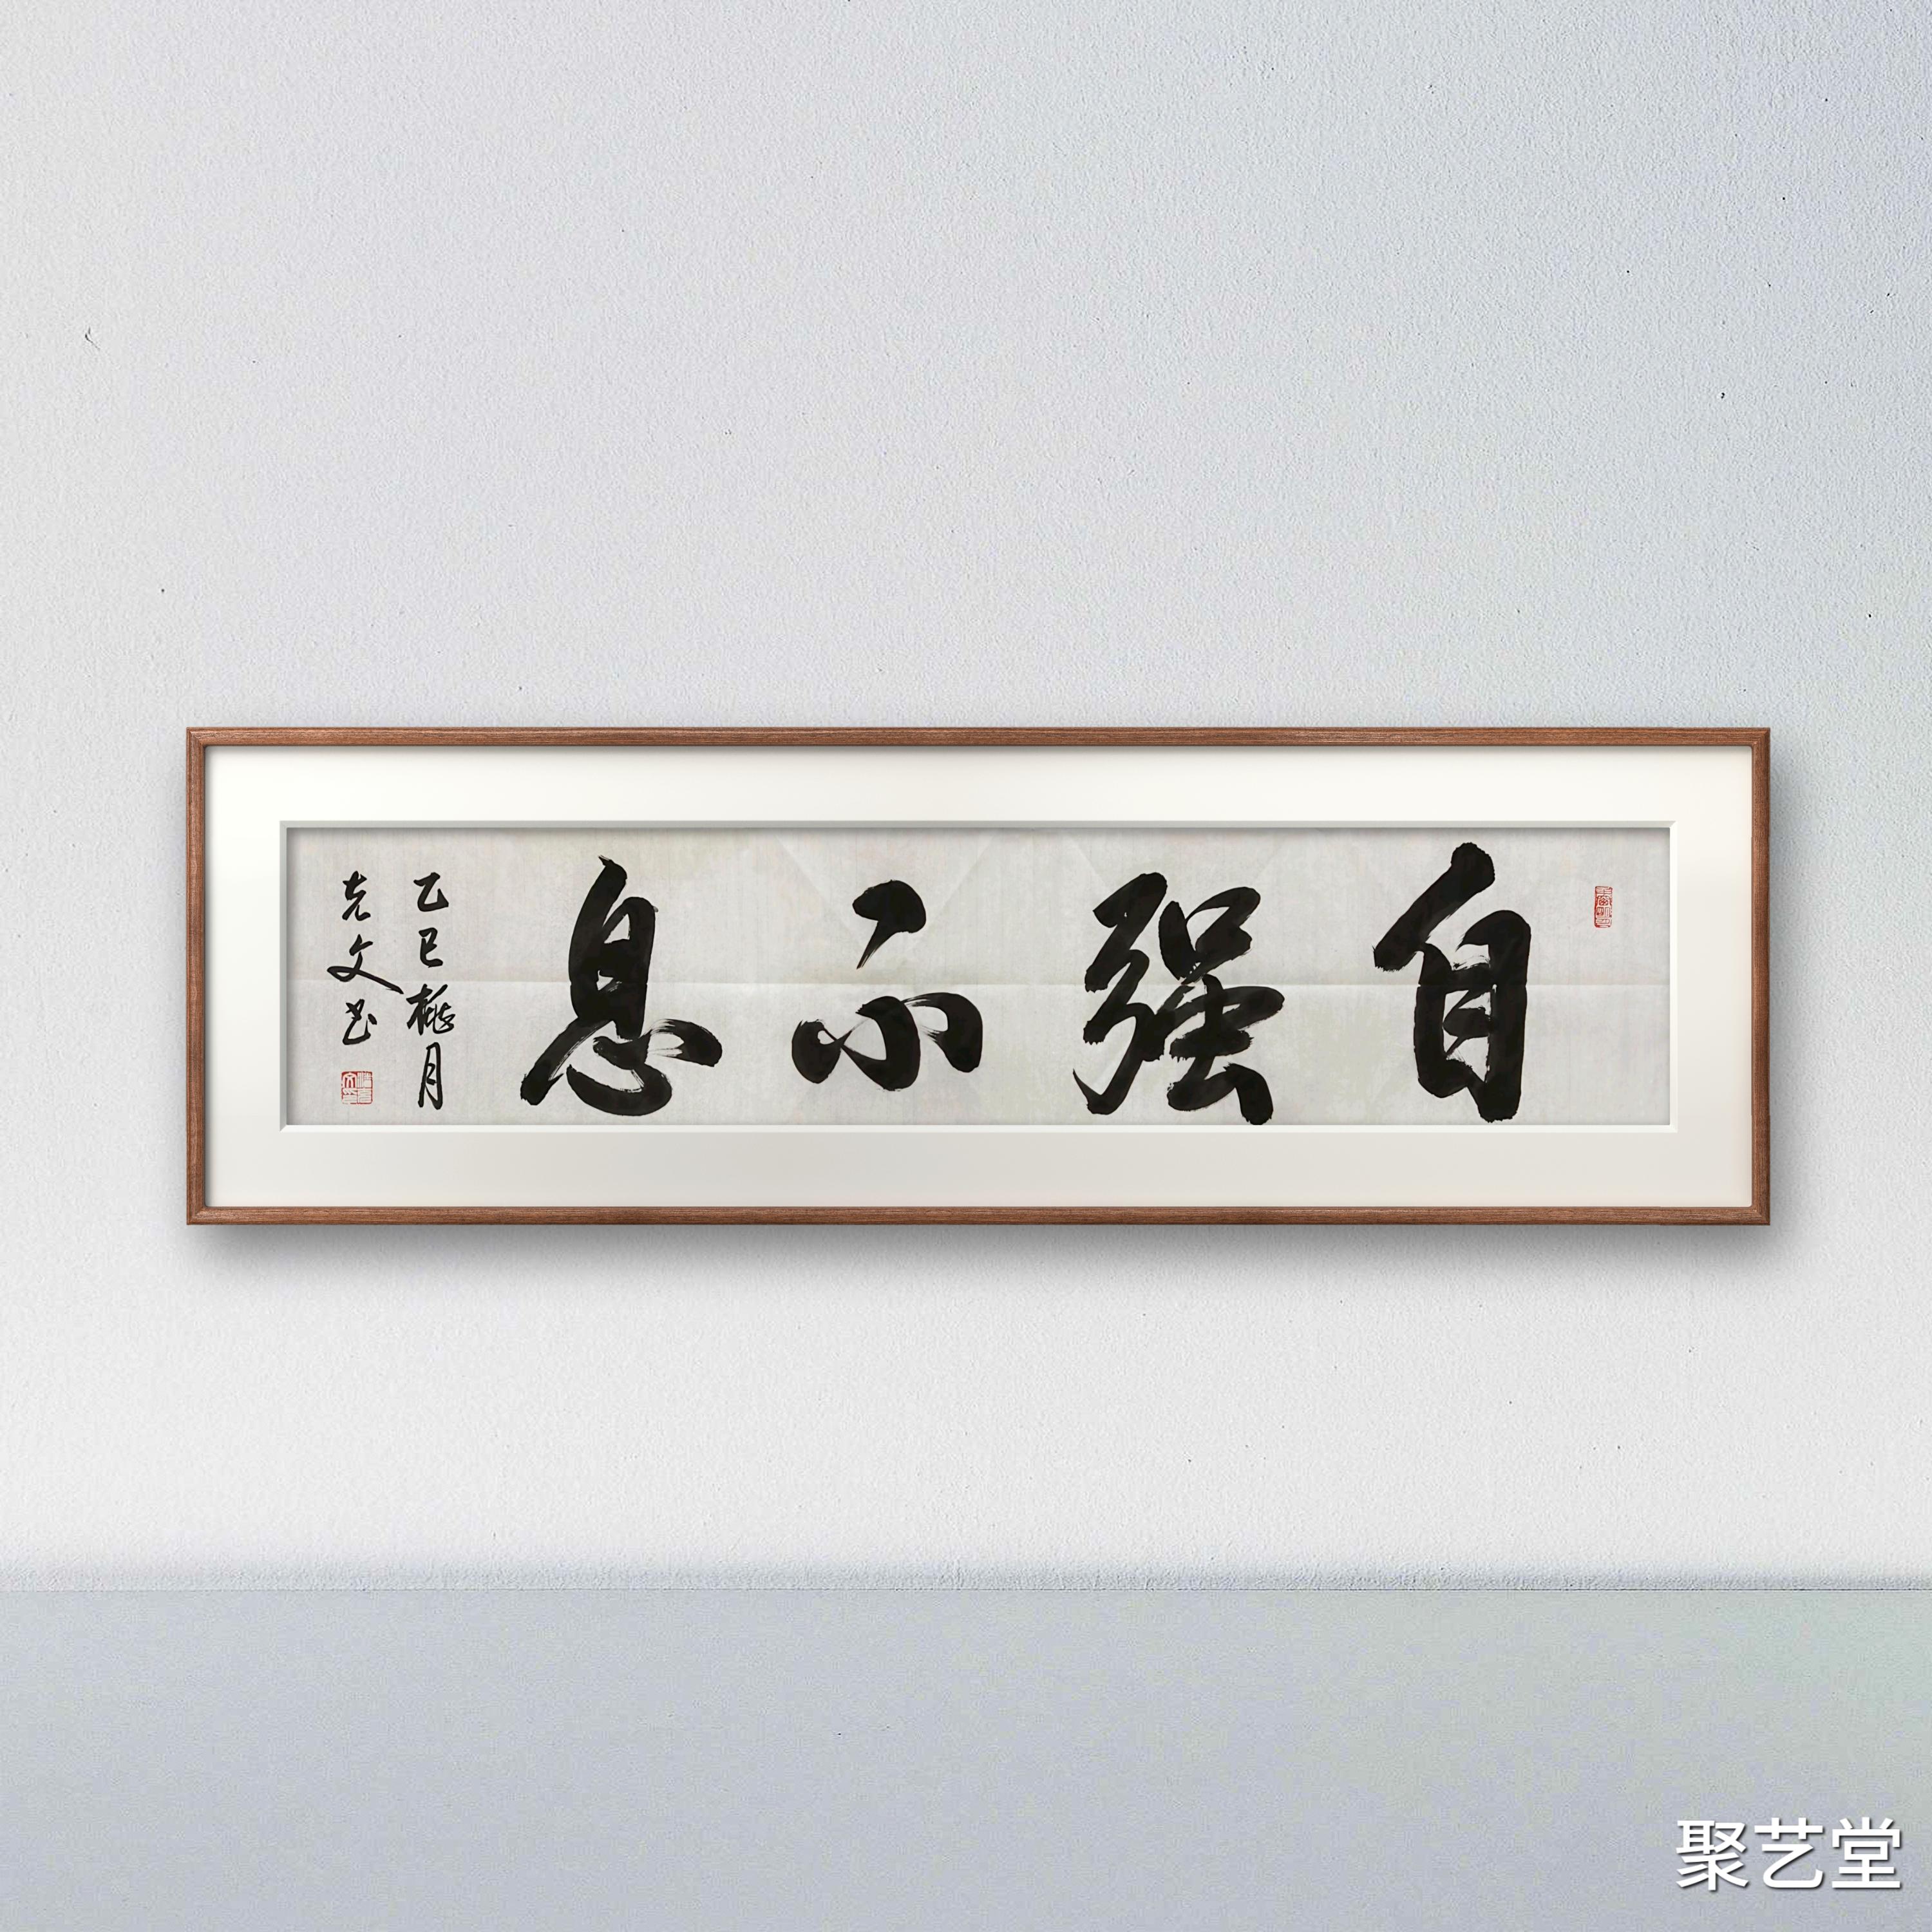 自强不息
乙巳桃月
克文书
聚艺堂